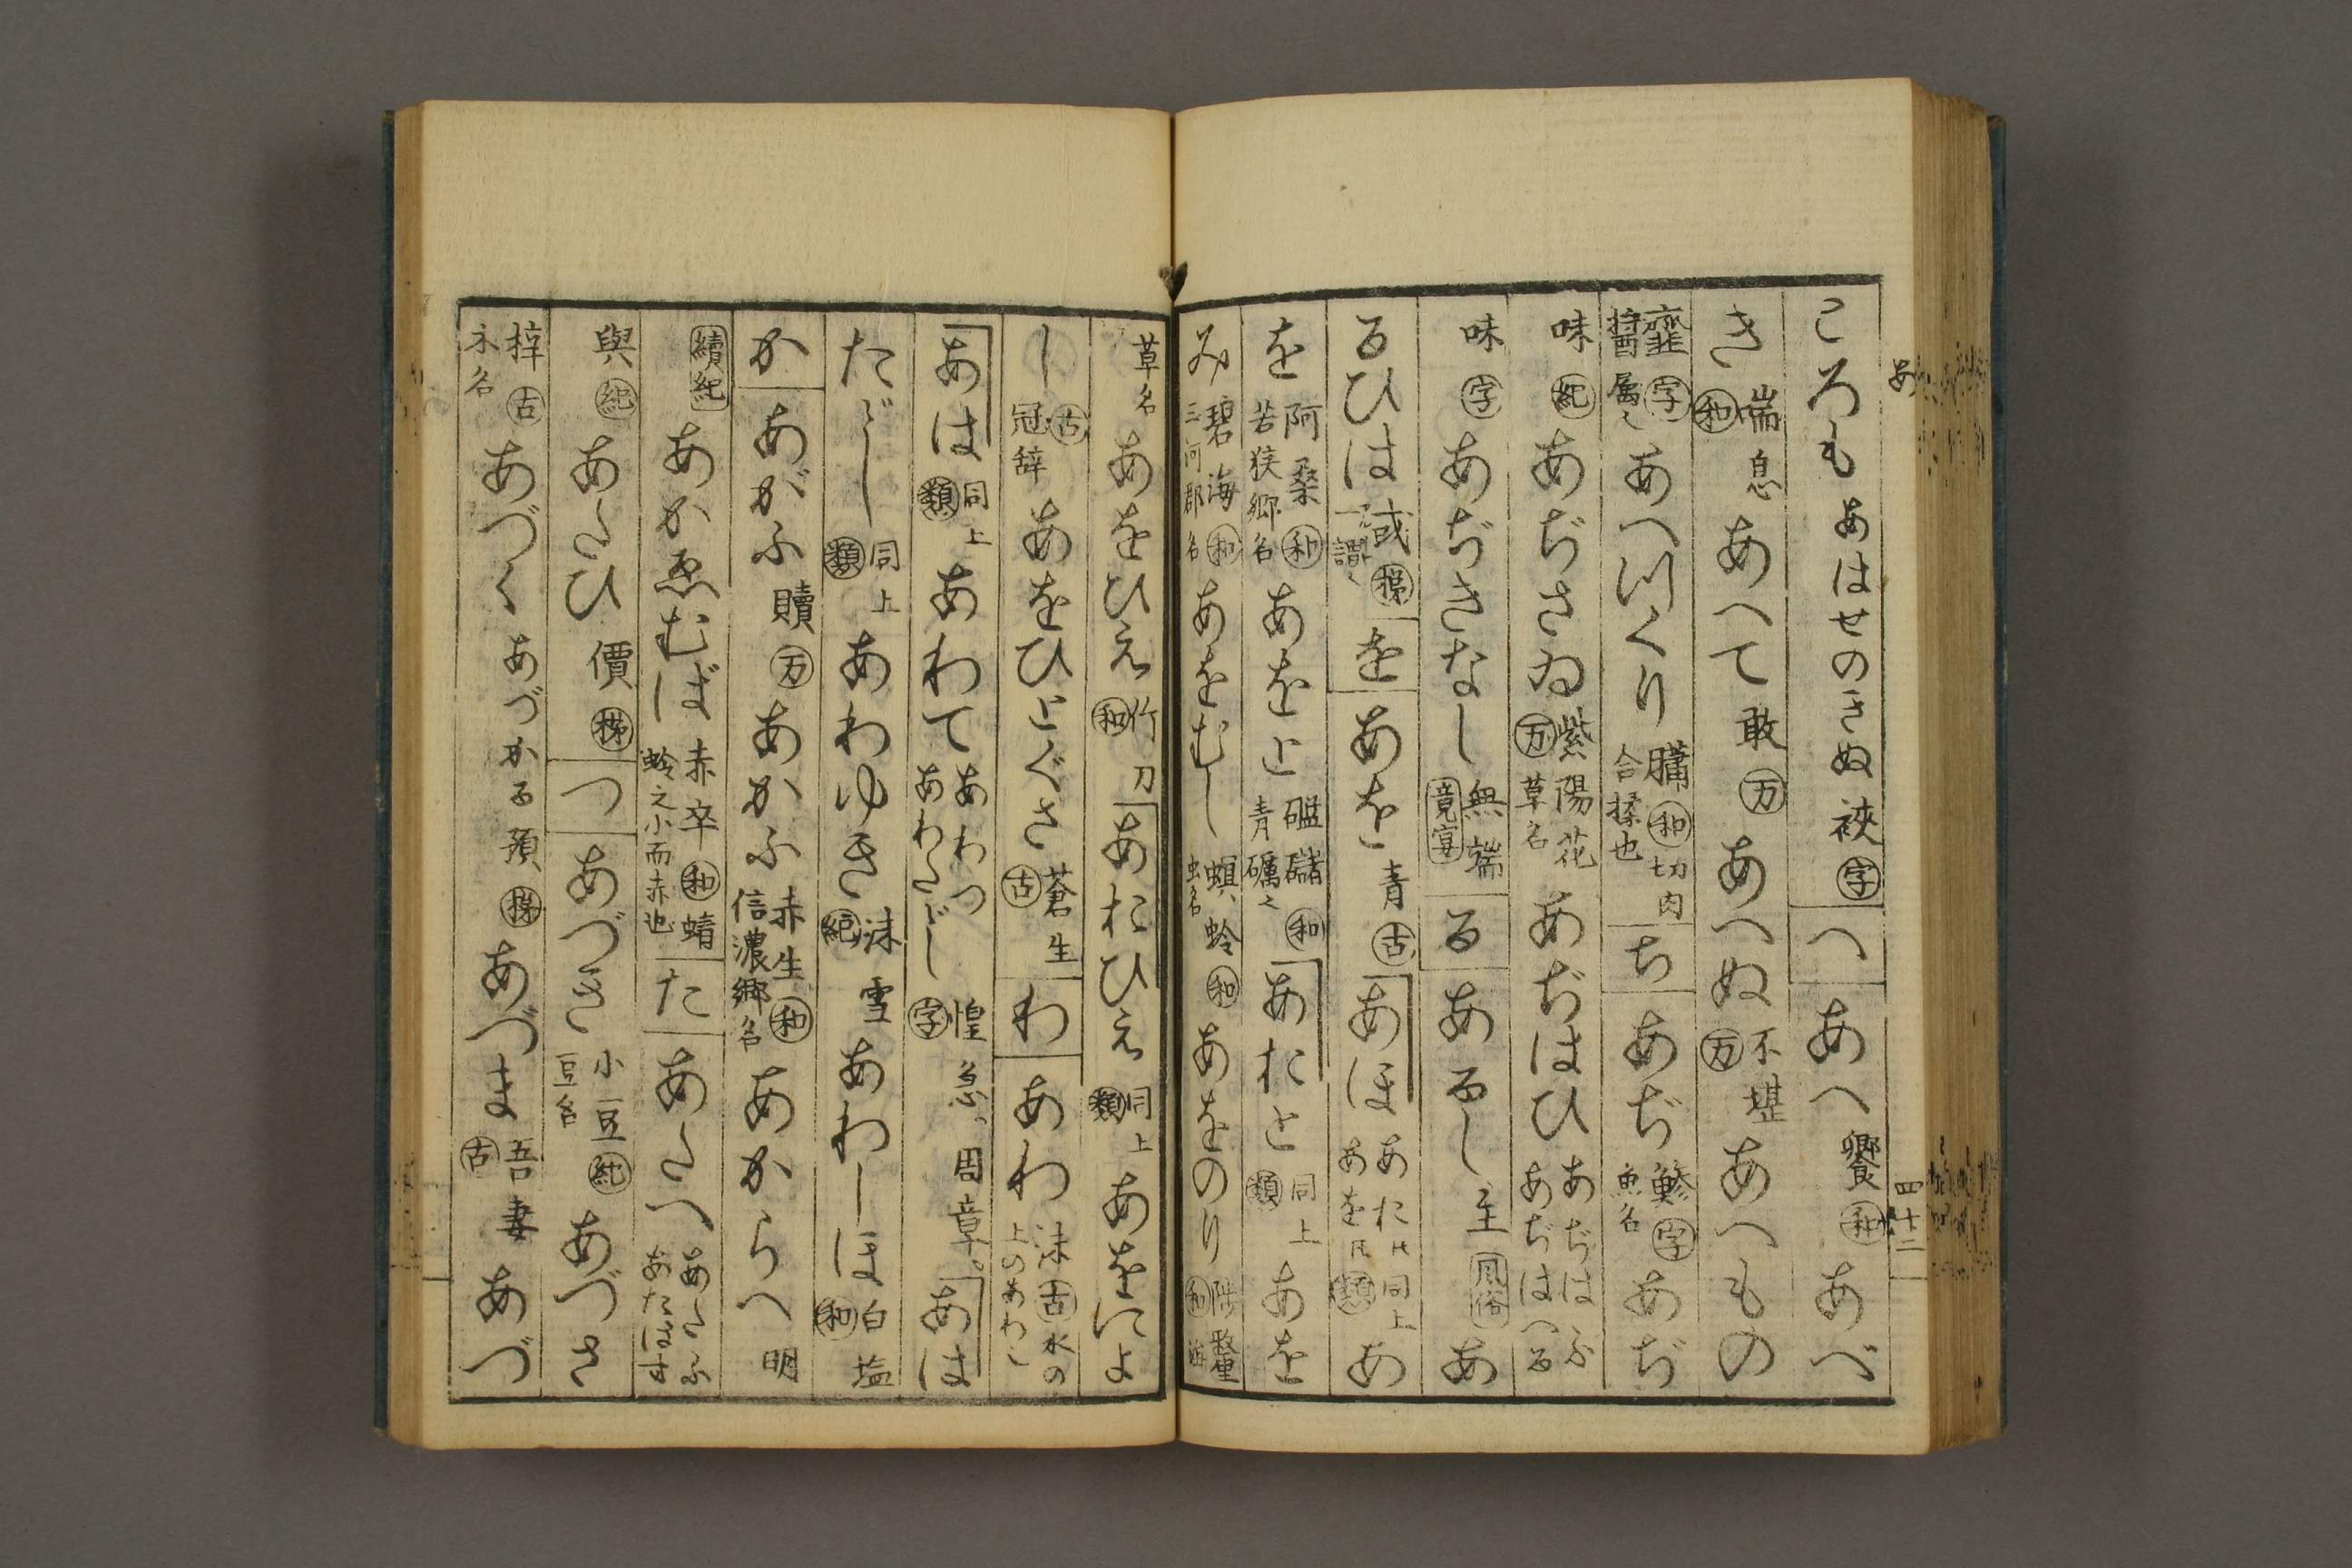 あ
四十二
ころも あはせのきぬ 袷 字 へ あへ 饗 和 あべ
き 喘息 和 あへて 敢 万 あへぬ 不堪 万 あへもの
韲 字 醤属 あへつくり 膞 和 切肉合揉也 ち あぢ 鰺 字 魚名 あぢ
味 紀 あぢさゐ 紫陽花 万 草名 あぢはひ あぢはふ あぢはへる
味 字 あぢきなし 無端 竟宴 る あるし 主 風俗 あ
るひは 或 を あを 青 古 あほ 同上 類 あ
を 阿桑 和 若狭郷名 あをと 礛䃴 和 青礪 あおと 同上 類 あを
み 碧海 和 三河郡名 あをむし 螟蛉 和 虫名 あをのり 陟釐 和
草名 あをひえ 竹刀 和 あおひえ 同上 類 あをによ
し 古 冠辞 あをひとぐさ 蒼生 古 わ あわ 沫 古 水の上のあわ
あは 同上 類 あわて あわつ あわたゞし 惶急、周章。 字 あは
たゞし 同上 類 あわゆき 沫雪 紀 あわしほ 白塩 和
か あがふ 贖 万 あかふ 赤生 和 信濃郷名 あからへ 明
續紀 あかゑむば 赤卒 和 蜻蛉之小而赤也 た あたへ あたふ あたはす
與 紀 あたひ 價 つ あづき 小豆 紀 豆名 あづさ
梓 古 木名 あづく あづかる 預 あづま 吾妻 古 あづ